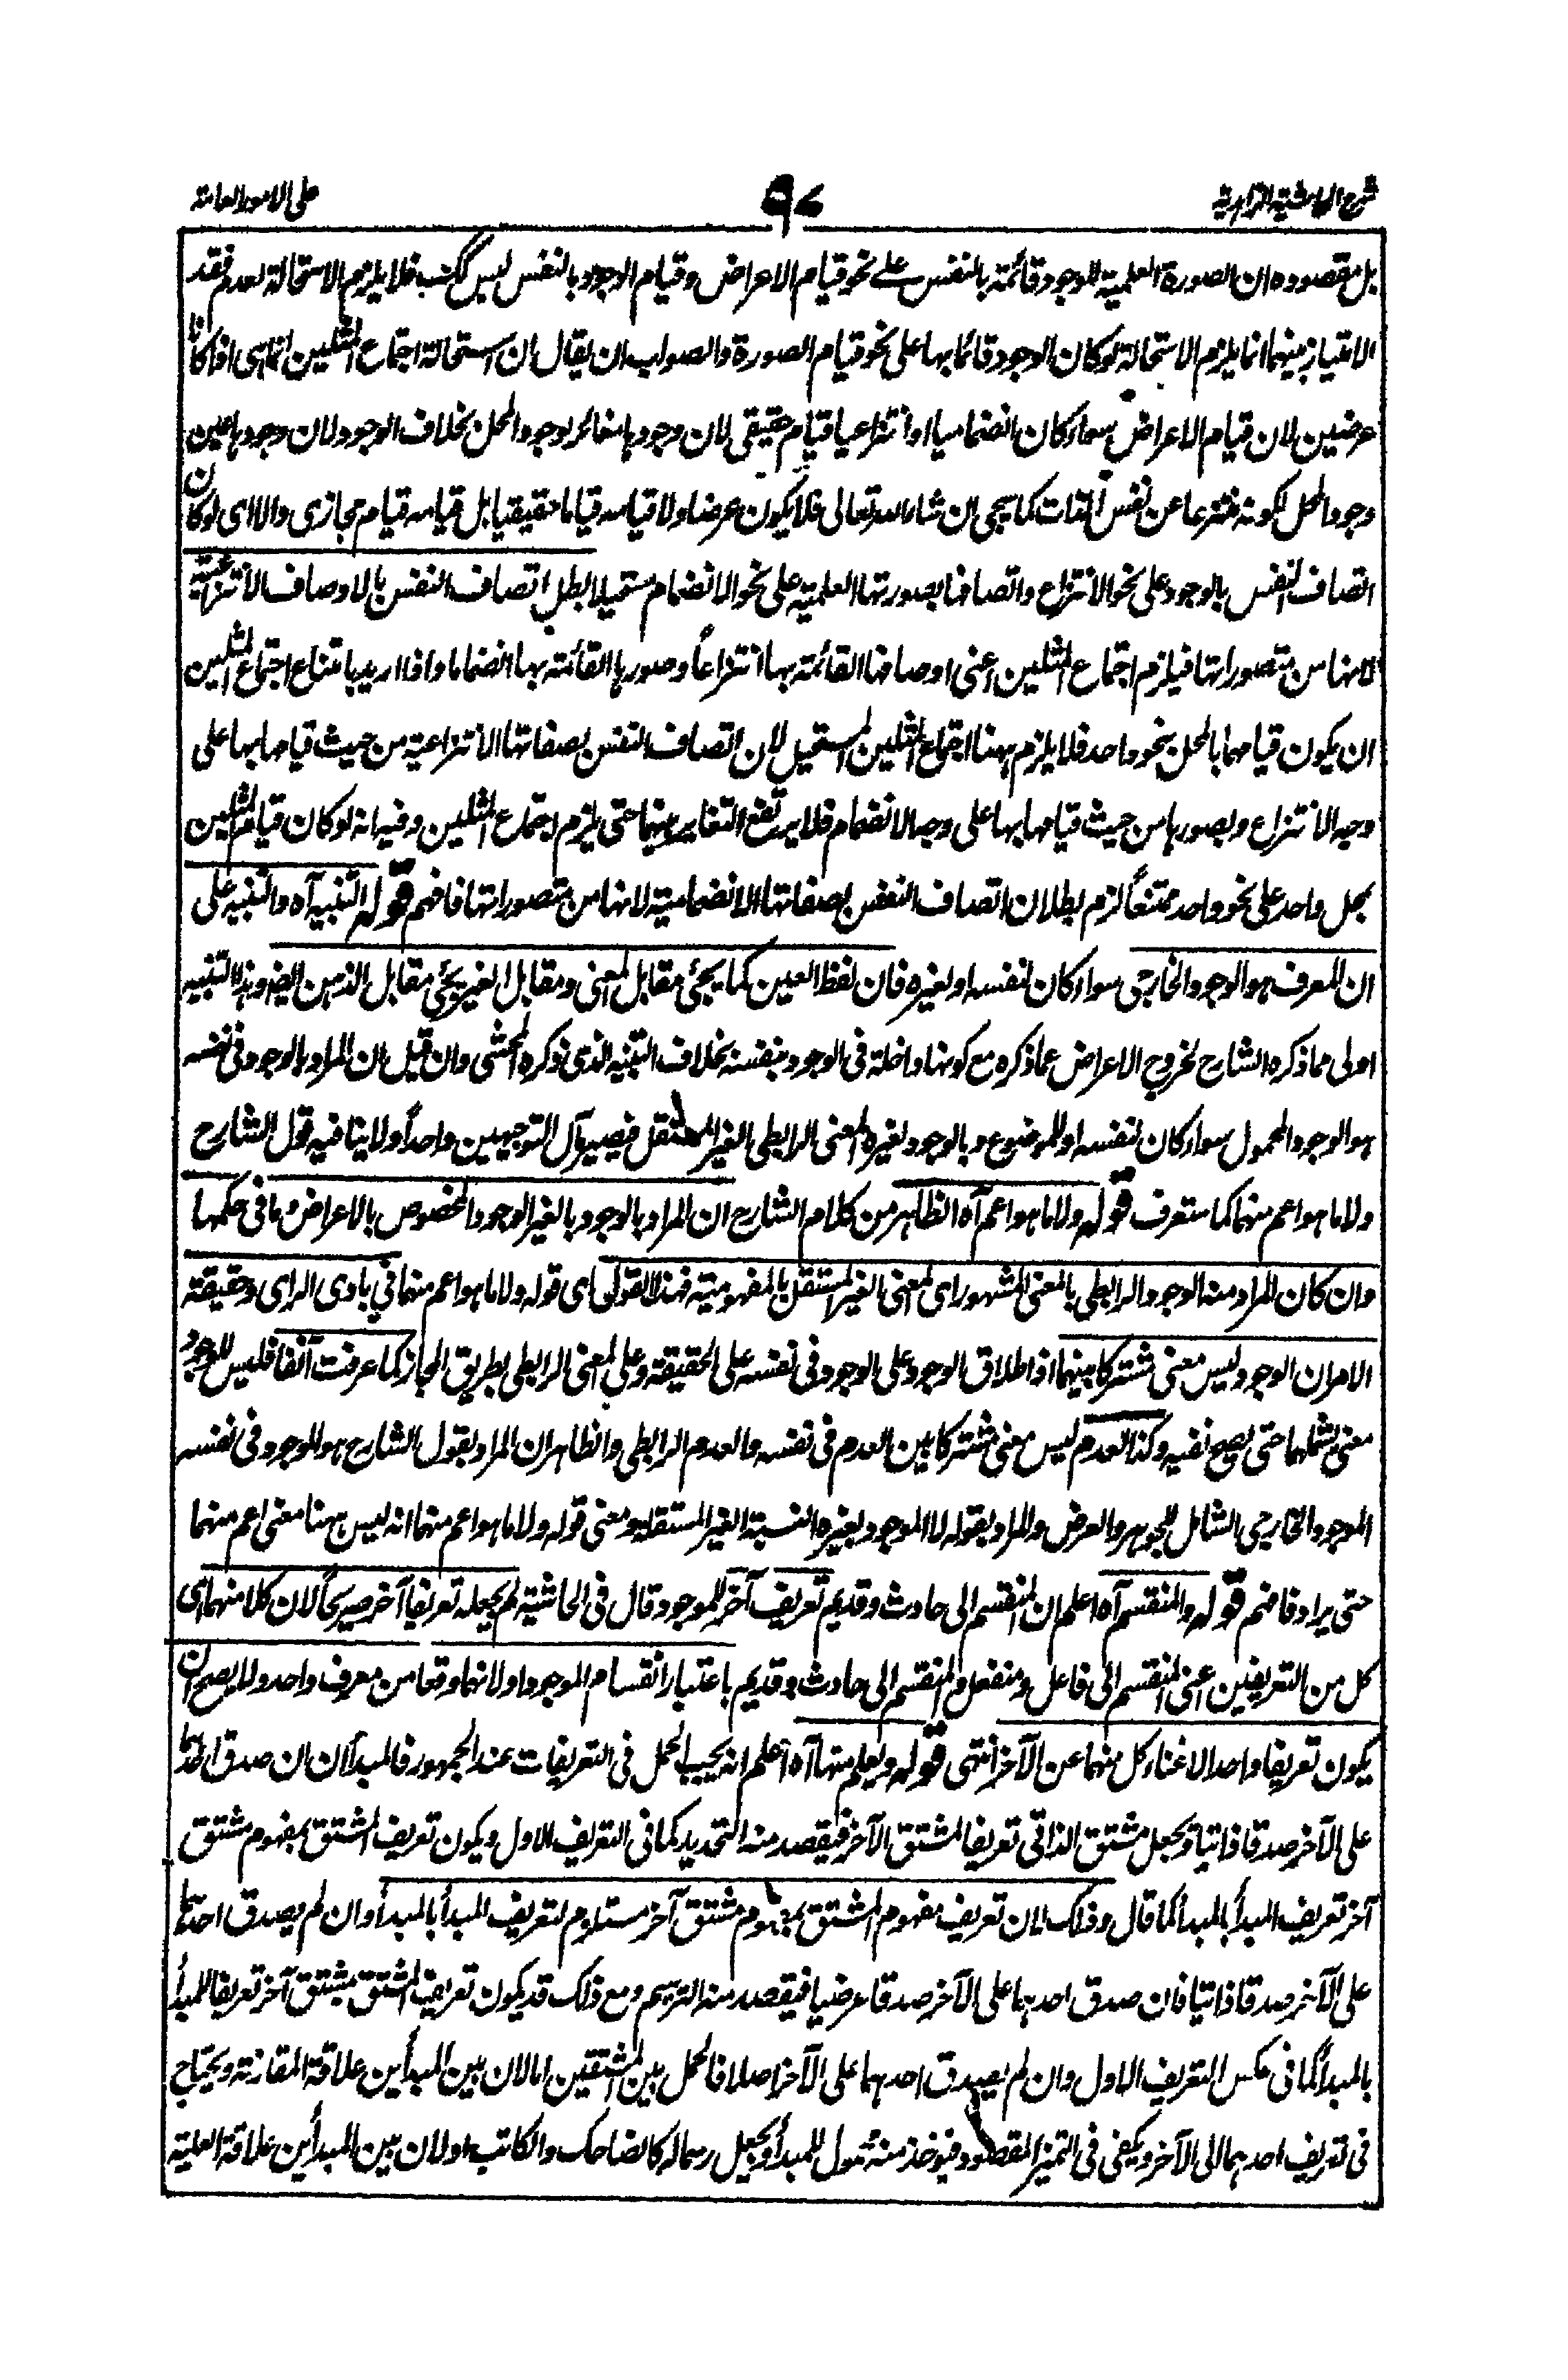 شرح الحاشية الزاهدية
٩٧
على الامور العامة
بل مقصوده ان الصورة العلمية للوجود قائمة بالنفس على نحو قيام الاعراض وقيام الوجود بالنفس ليس كذلك فلا يلزم الاستحالة لعدم فقد
الامتياز بينهما انما يلزم الاستحالة لو كان الوجود قائما بها على نحو قيام الصورة والصواب ان يقال ان استحالة اجتماع المثلين انما هى اذا كانا
عرضين لان قيام الاعراض سواء كان انضماميا او انتزاعيا قيام حقيقى لان وجودها مغائر لوجود المحل بخلاف الوجود لان وجودها عين
وجود المحل لكونه منتزعا عن نفس الذات كما سيجى ان شاء الله تعالى فلا يكون عرضا ولا قيامه قياما حقيقيا بل قيامه قيام مجازى والا اى لو كان
اتصاف النفس بالوجود على نحو الانتزاع واتصافها بصورتها العلمية على نحو الانضمام مستحيلا بطل اتصاف النفس بالاوصاف الانتزاعية
لانها من متصوراتها فيلزم اجتماع المثلين اعنى اوصافها القائمة بها انتزاعاً وصورها القائمة بها انضماما واذا اريد بامتناع اجتماع المثلين
ان يكون قيامهما بالمحل بنحو واحد فلا يلزم ههنا اجتماع المثلين المستحيل لان اتصاف النفس بصفاتها الانتزاعية من حيث قيامها بها على
وجه الانتزاع وبصورها من حيث قيامها بها على وجه الانضمام فلا يرتفع التغاير بينهما حتى يلزم اجتماع المثلين وفيه انه لو كان قيام المثلين
بمحل واحد على نحو واحد ممتنعاً لزم بطلان اتصاف النفس بصفاتها الانضمامية لانها من متصوراتها فافهم قوله التنبيه آه والتنبيه على
ان المعرف هو الوجود الخارجى سواء كان لنفسه او لغيره فان لفظ العين كما يجئ مقابل المعنى ومقابل الغير يجئ مقابل الذهن ايضا وهذا التنبيه
اولى مما ذكره الشارح لخروج الاعراض عما ذكره مع كونها داخلة فى الوجود بنفسه بخلاف التنبيه الذى ذكره المحشى وان قيل ان المراد بالوجود فى نفسه
هو الوجود المحمول سواء كان لنفسه او للموضوع وبالوجود لغيره المعنى الرابطى الغير المستقل فيصير مآل التوجيهين واحداً ولا ينافيه قول الشارح
ولا ما هو اعم منهما كما ستعرف قوله ولا ما هو اعم آه الظاهر من كلام الشارح ان المراد بالوجود بالغير الوجود المخصوص بالاعراض وما فى حكمها
وان كان المراد منه الوجود الرابطى بالمعنى المشهور اى المعنى الغير المستقل بالمفهومية فهذا القول اى قوله ولا ما هو اعم منهما فى بادى الراى وحقيقته
الامر ان الوجود ليس معنى مشتركا بينهما اذ اطلاق الوجود على الوجود فى نفسه على الحقيقة وعلى المعنى الرابطى بطريق المجاز كما عرفت آنفا فليس للوجود
معنى يشملهما حتى يصح نفيه وكذا العدم ليس معنى مشتركا بين العدم فى نفسه والعدم الرابطى والظاهر ان المراد بقول الشارح هو الموجود فى نفسه
الموجود الخارجى الشامل للجوهر والعرض والمراد بقوله لا الموجود بغيره النسبة الغير المستقلة ومعنى قوله ولا ما هو اعم منهما انه ليس ههنا معنى اعم منهما
حتى يراد فافهم قوله والمنقسم آه اعلم ان المنقسم الى حادث وقديم تعريف آخر للموجود قال فى الحاشية لم يجعله تعريفا آخر صريحاً لان كلا منهما اى
كل من التعريفين اعنى المنقسم الى فاعل ومنفعل والمنقسم الى حادث وقديم باعتبار انقسام الموجود اولا نهما وقعا من معرف واحد ولا يصح ان
يكون تعريفا واحدا لاغناء كل منهما عن الآخر انتهى قوله ويعلم منها آه اعلم انه يجب الحمل فى التعريفات عند الجمهور فالمبدآن ان صدق احدهما
على الآخر صدقا ذاتيا ويجعل مشتق الذاتى تعريفا لمشتق الآخر فيقصد منه التحديد كما فى التعريف الاول ويكون تعريف المشتق بمفهوم مشتق
آخر تعريف المبدأ بالمبدأ كما قال وذلك لان تعريف مفهوم المشتق بمفهوم مشتق آخر مستلزم لتعريف المبدأ بالمبدأ وان لم يصدق احدهما
على الآخر صدقا ذاتيا فان صدق احدهما على الآخر صدقا عرضيا فيقصد منه الترسيم ومع ذلك قد يكون تعريف المشتق بمشتق آخر تعريفا للمبدأ
بالمبدأ كما فى عكس التعريف الاول وان لم يصدق احدهما على الآخر اصلا فالحمل بين المشتقين اما لان بين المبدأين علاقة المقارنة ويحتاج
فى تعريف احدهما الى الآخر ويكفى فى التميز المقصود فيؤخذ منه محمول للمبدأ ويجعل رسما له كالضاحك والكاتب او لان بين المبدأين علاقة العلية